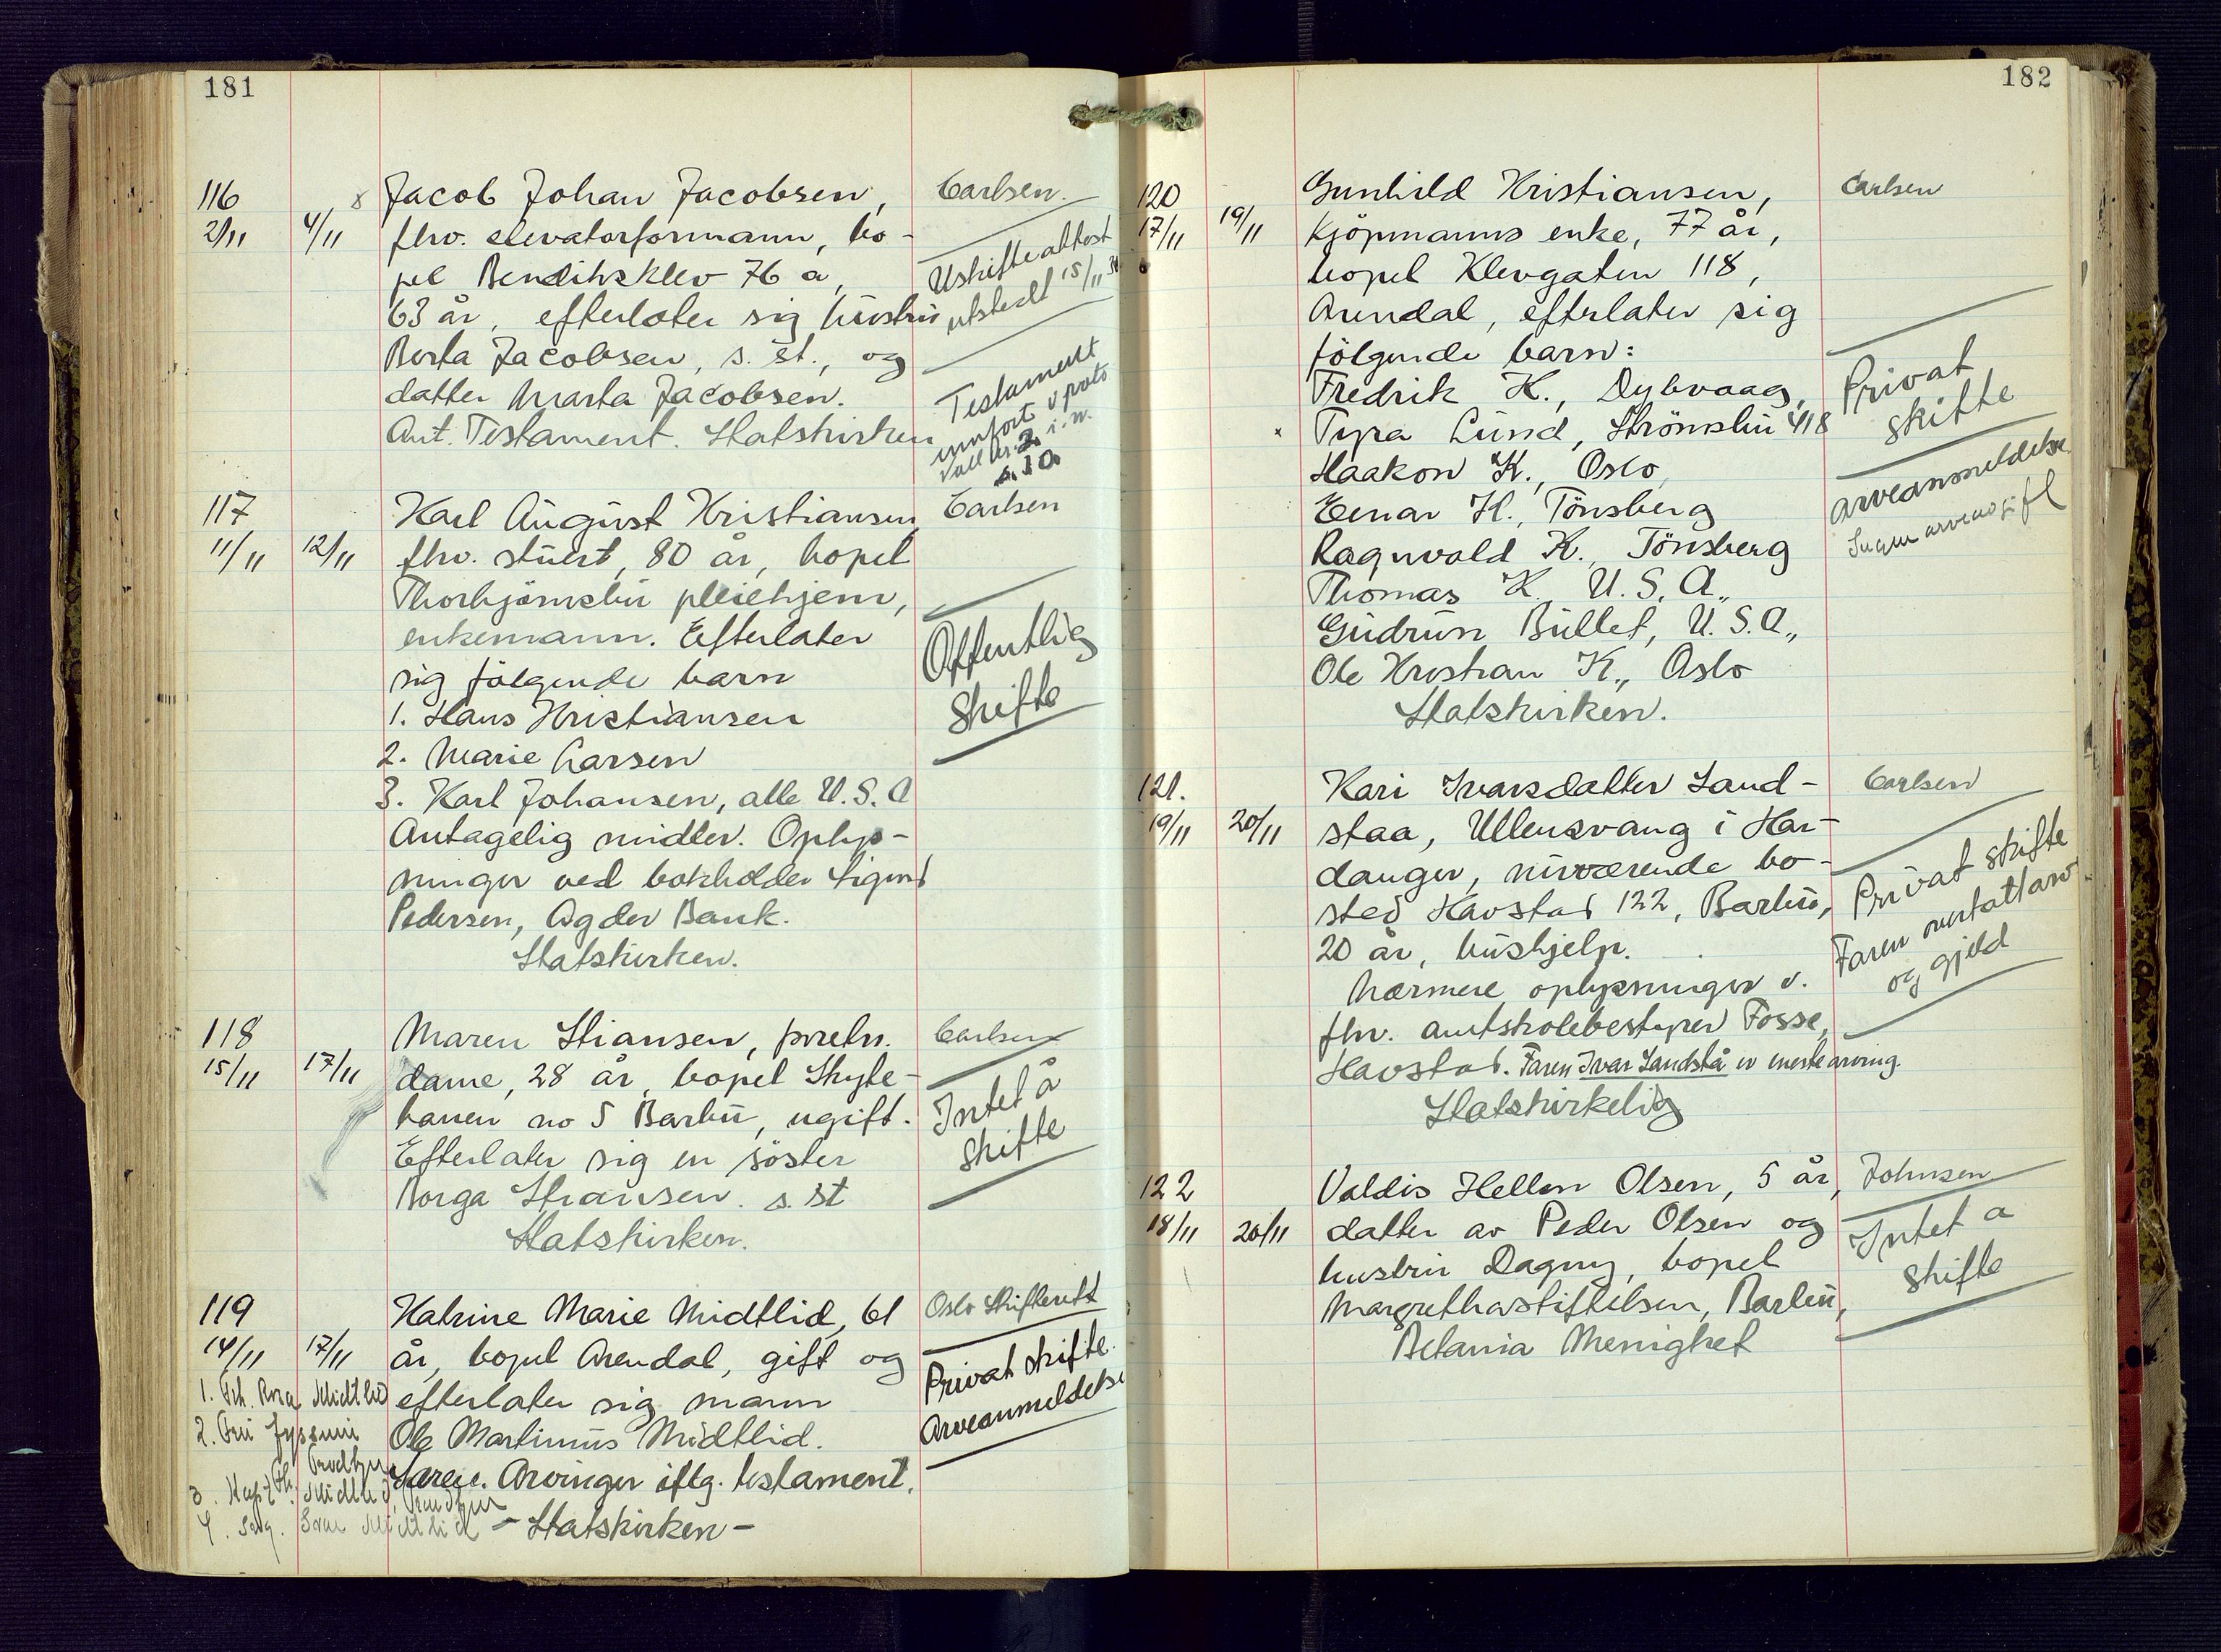 181
116
2/11 4/11
x Jacob Johan Jacobsen,
fhv. elevatorformann, bo-
pel Bendiksklev 76 a,
63 år, efterlater sig hustru
Berta Jacobsen, s. st., og
datter Marta Jacobsen.
Ant. Testament. Statskirken
Carlsen.
Uskifteattest
utstedt 15/11 3
Testament
innført i prot.
10
117
11/11 12/11
Karl August Kristiansen
fhv. stuert, 80 år, bopel
Thorbjørnsbu pleiehjem,
enkemann. Efterlater
sig følgende barn
1. Hans Kristiansen
2. Marie Larsen
3. Karl Johansen, alle U.S.A
Antagelig midler. Oplys-
ninger ved bokholder Sigurd
Pedersen, Agder Bank.
Statskirken.
Carlsen
Offentlig
skifte
118
15/11 17/11
Maren Stiansen, forretn.
dame, 28 år, bopel Skyte-
banen no 5 Barbu, ugift.
Efterlater sig en søster
Borga Stiansen. s. st
Statskirken.
Carlsen
Intet å
skifte
119
14/11 17/11
Katrine Marie Midtlid, 61
år, bopel Arendal, gift og
efterlater sig mann
Ole Martinus Midtlid.
Arvinger iflg. testament.
- Statskirken -
1. Frk. Rosa Midtlid
2. Fru
3. Midtlid
4. Midtlid
Oslo Skifterett
Privat skifte.
Arveanmeldelse
182
120
17/11 19/11
Gunhild Kristiansen,
Kjøpmanns enke, 77 år,
bopel Klevgaten 118,
Arendal, efterlater sig
følgende barn:
Fredrik K., Dybvaag,
x Tyra Lund, Strømsbu 418
Haakon K., Oslo,
Einar K., Tönsberg
Ragnvald K., Tönsberg
Thomas K. U.S.A.,
Gudrun Bullet, U.S.A.,
Ole Kristian K., Oslo
Statskirken.
Carlsen
Privat
skifte
Arveanmeldelse
Ingen arveavgift
121.
19/11 20/11
Kari Ivarsdatter Land-
staa, Ullensvang i Har-
danger, nuværende bo-
sted Havstad 122, Barbu,
20 år, hushjelp.
Nærmere oplysninger v.
fhv. amtskolebestyrer Fosse,
Havstad. Faren Ivar Landstå er eneste arving.
Statskirkelig
Carlsen
Privat skifte
Faren overtatt arv
og gjeld
122
18/11 20/11
Valdis Hellen Olsen, 5 år,
datter av Peder Olsen og
hustru Dagny, bopel
Margrethastiftelsen, Barbu,
Betania Menighet
Johnsen
Intet a
skifte